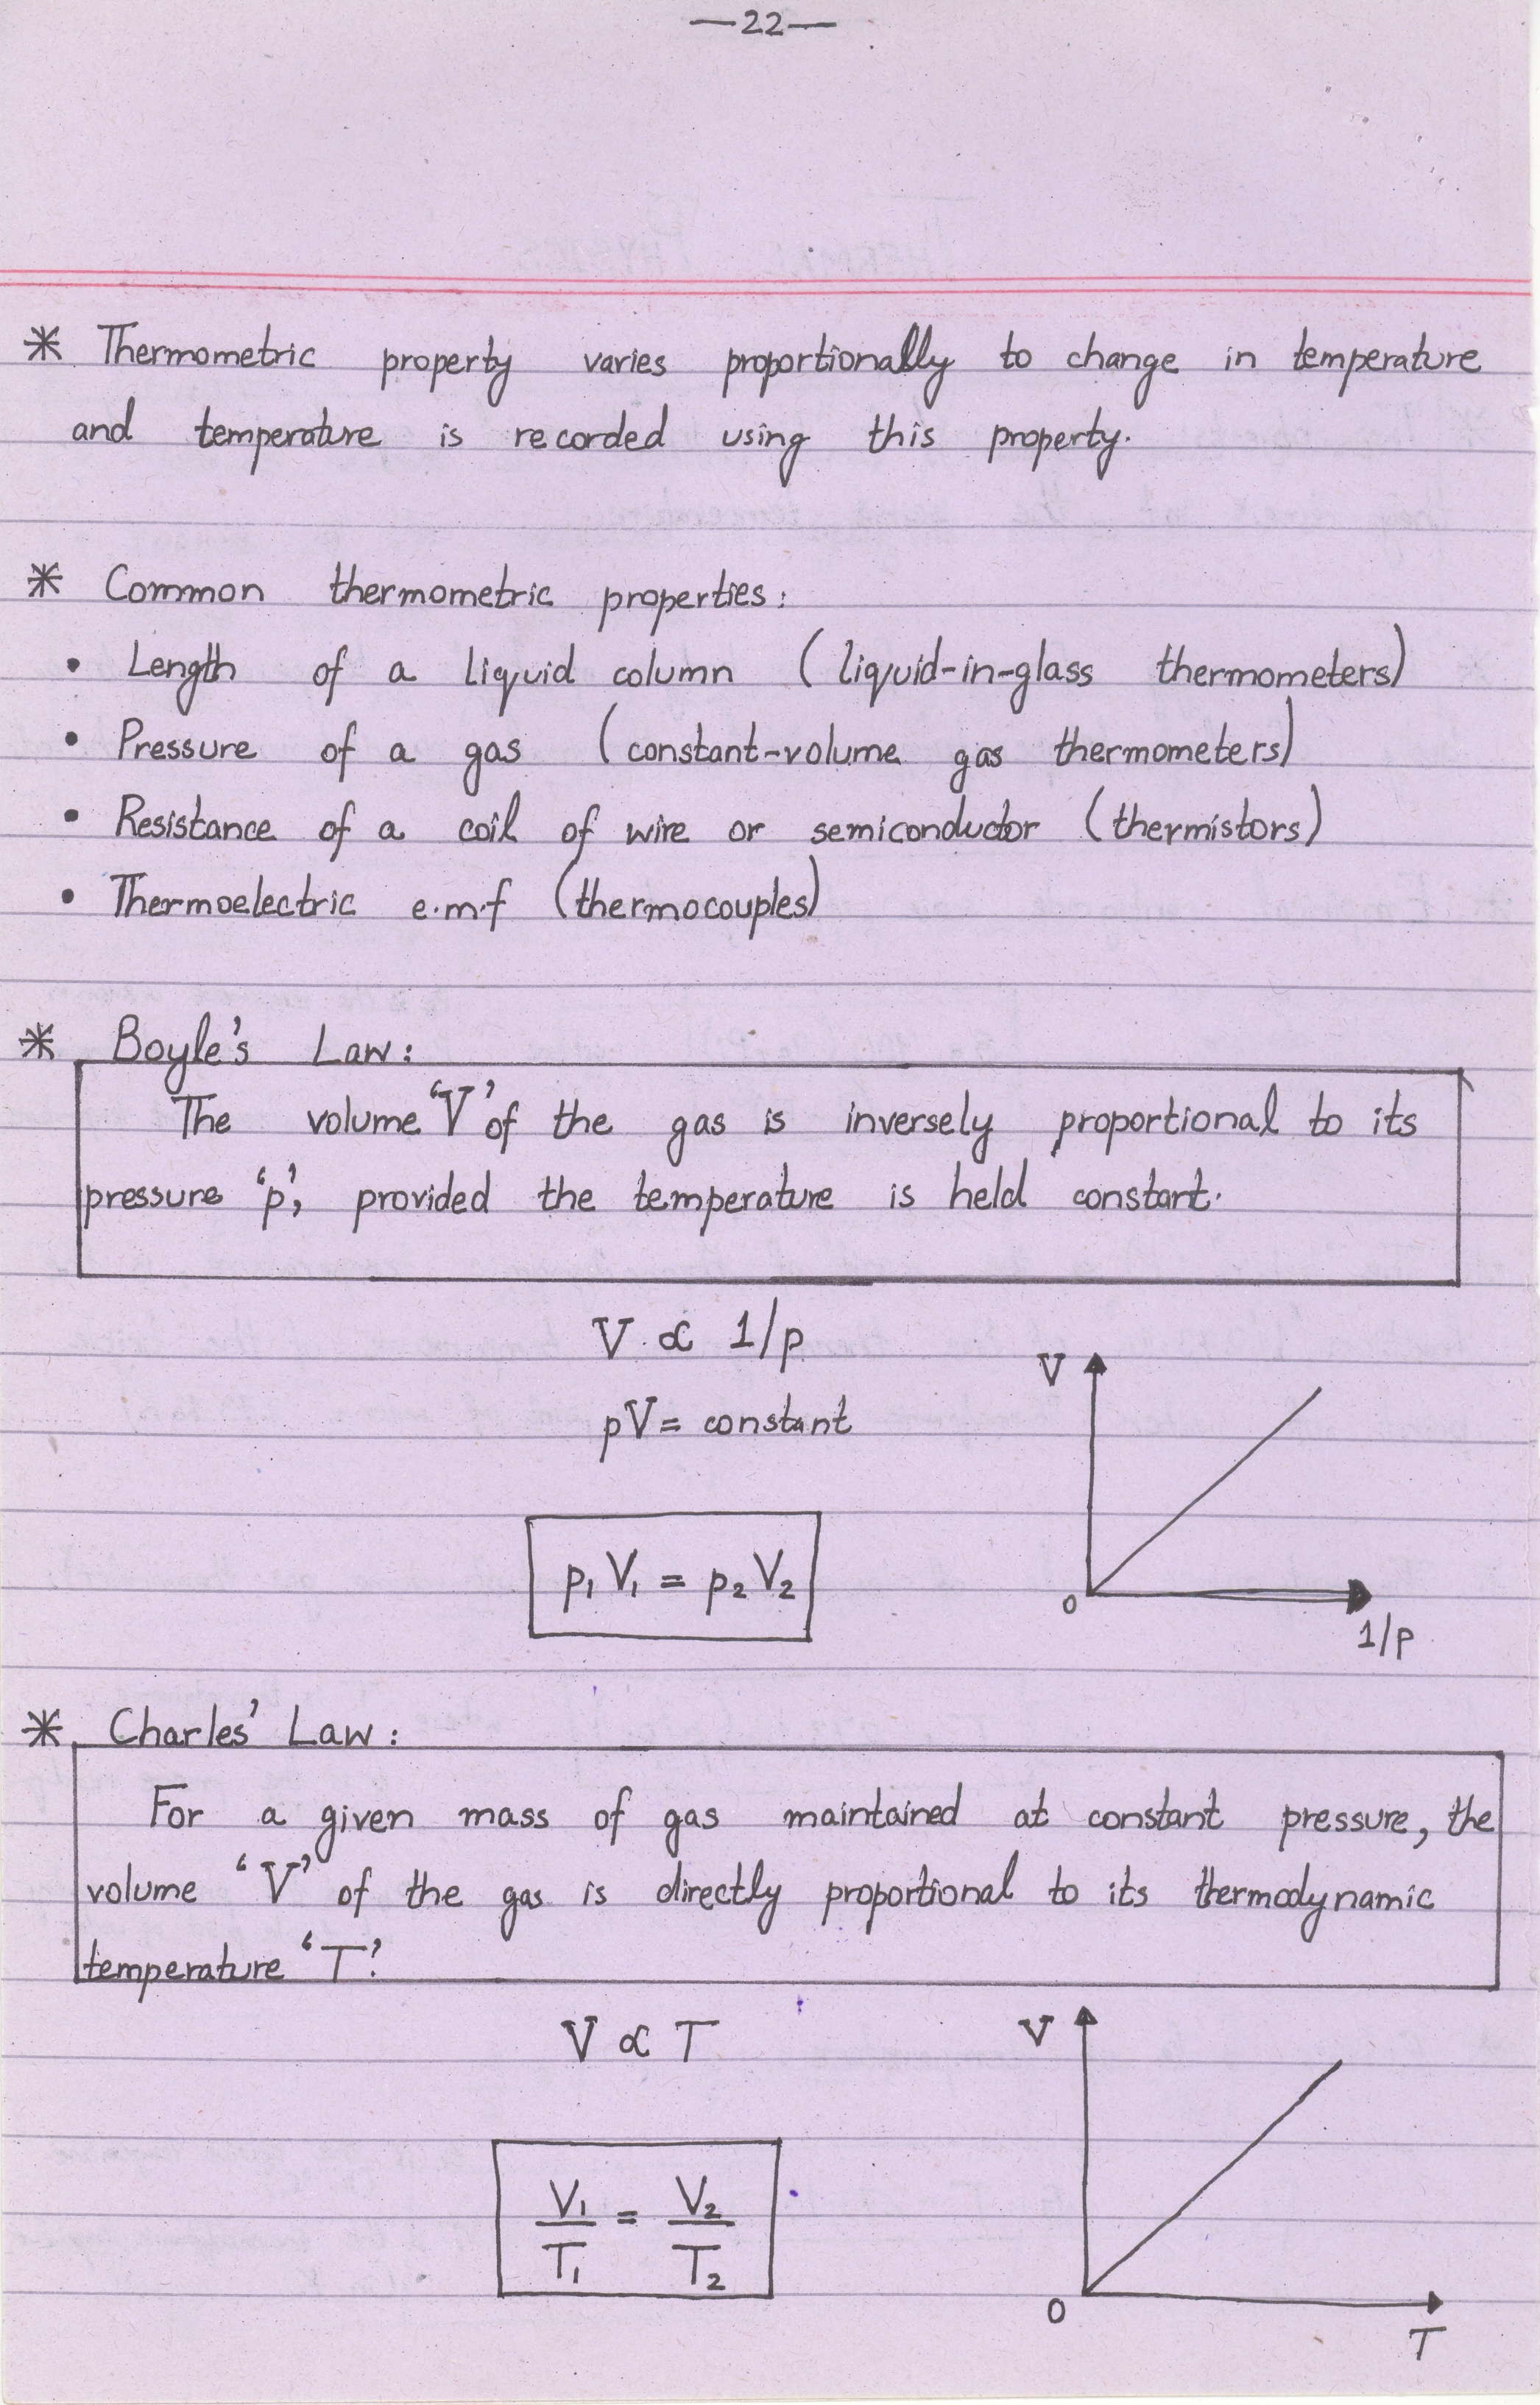 —22—
* Thermometric property varies proportionally to change in temperature
and temperature is recorded using this property.
* Common thermometric properties:
• Length of a liquid column (liquid-in-glass thermometers)
• Pressure of a gas (constant-volume gas thermometers)
• Resistance of a coil of wire or semiconductor (thermistors)
• Thermoelectric e.m.f (thermocouples)
* Boyle's Law:
The volume 'V' of the gas is inversely proportional to its
pressure 'p', provided the temperature is held constant.
V ∝ 1/p
pV = constant
p₁V₁ = p₂V₂
V
0
1/p
* Charles' Law:
For a given mass of gas maintained at constant pressure, the
volume 'V' of the gas is directly proportional to its thermodynamic
temperature 'T'.
V ∝ T
V₁/T₁ = V₂/T₂
V
0
T